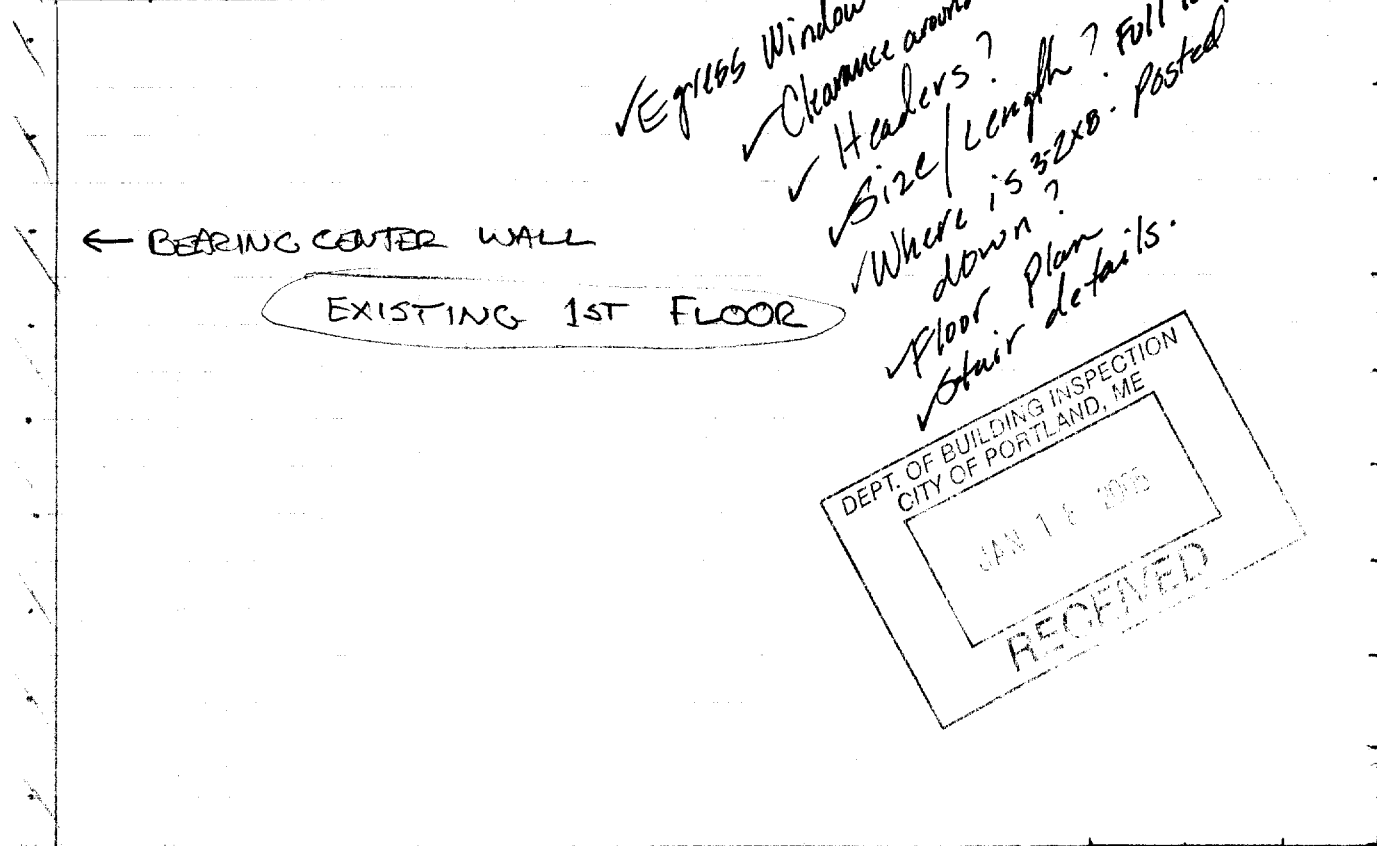 ✓Egress Window
✓Clearance around
✓Headers?
✓Size/Length? Full
✓Where is 3-2x8. Posted
down?
✓Floor Plan
✓Stair details.
← BEARING CENTER WALL
EXISTING 1ST FLOOR
DEPT. OF BUILDING INSPECTION
CITY OF PORTLAND, ME
JAN 1
RECEIVED